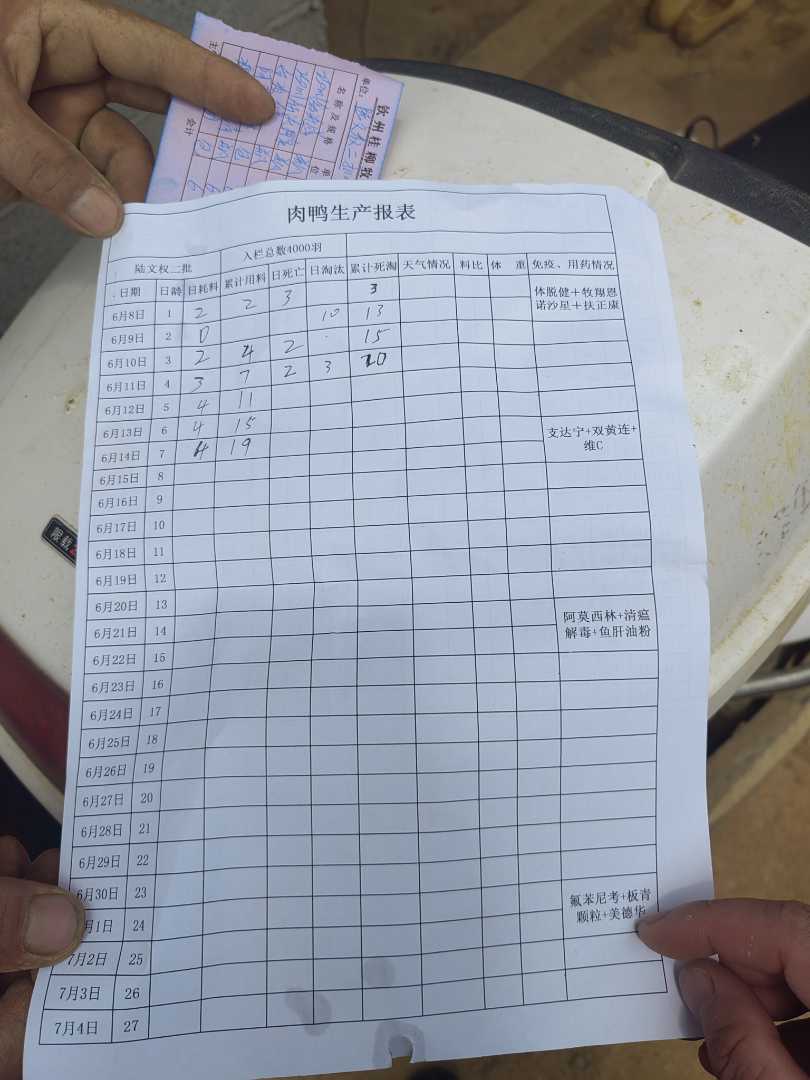 钦州桂柳牧
单位:
名称及规格
单位
会计
肉鸭生产报表
陆文权二批 入栏总数4000羽
日期 日龄 日耗料 累计用料 日死亡 日淘汰 累计死淘 天气情况 料比 体 重 免疫、用药情况
6月8日 1 2 2 3 3
体脱健+牧翔恩
诺沙星+扶正康
6月9日 2 0 10 13
6月10日 3 2 4 2 15
6月11日 4 3 7 2 3 20
6月12日 5 4 11
6月13日 6 4 15
6月14日 7 4 19
支达宁+双黄连+
维C
6月15日 8
6月16日 9
6月17日 10
6月18日 11
6月19日 12
6月20日 13
6月21日 14
阿莫西林+清瘟
解毒+鱼肝油粉
6月22日 15
6月23日 16
6月24日 17
6月25日 18
6月26日 19
6月27日 20
6月28日 21
6月29日 22
6月30日 23
月1日 24
氟苯尼考+板青
颗粒+美德华
7月2日 25
7月3日 26
7月4日 27
限载